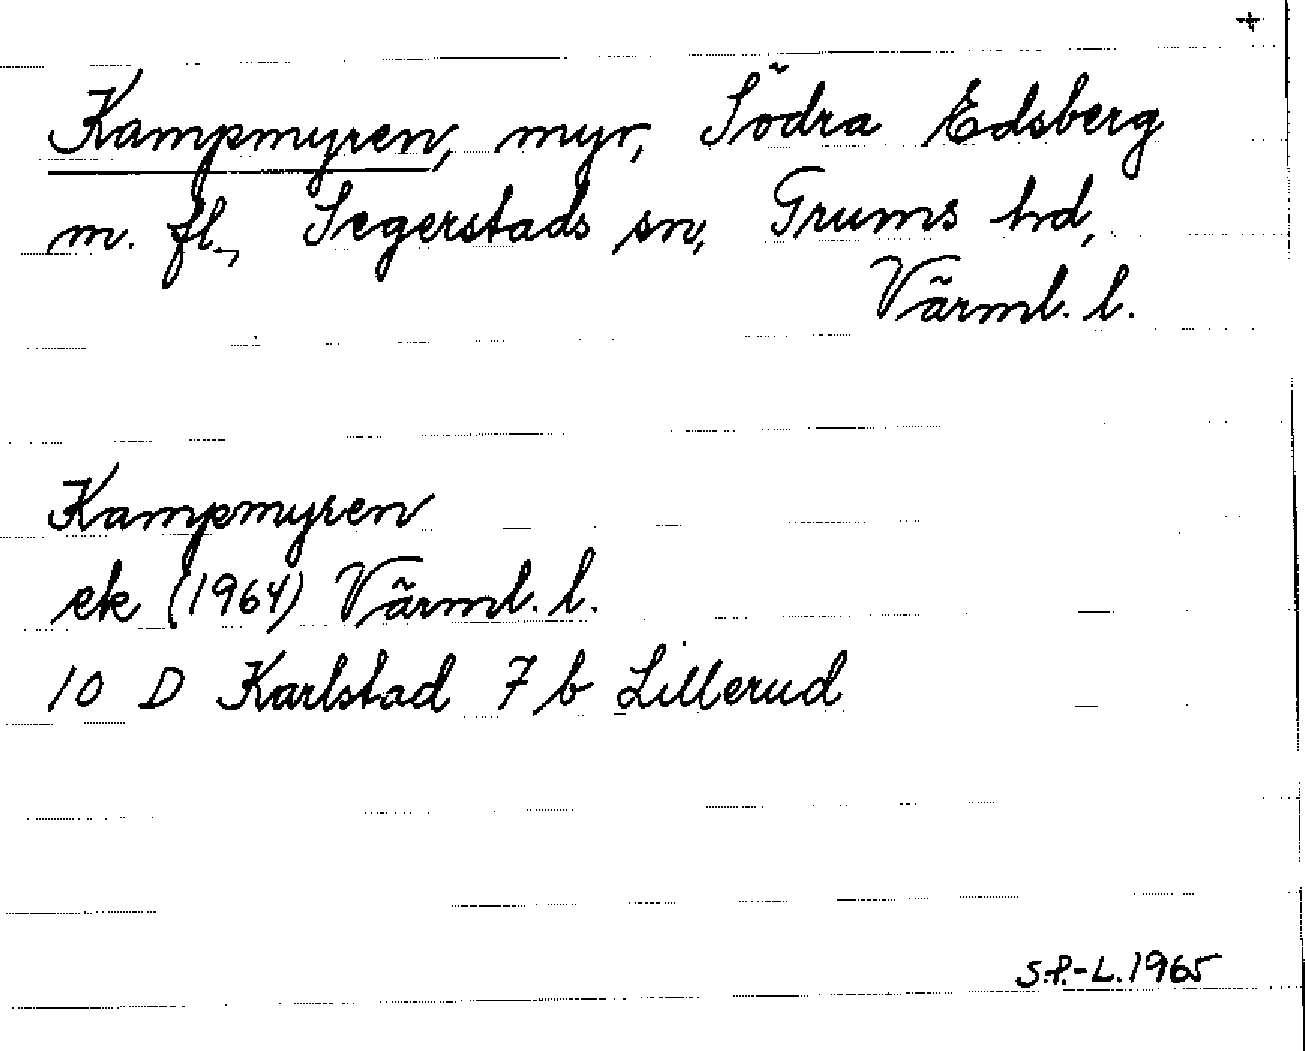 +
Kampmyren, myr, Södra Edsberg
m. fl., Segerstads sn, Grums hd,
Värml. l.
Kampmyren
ek (1964) Värml. l.
10 D Karlstad 7 b Lillerud
S.P.-L. 1965